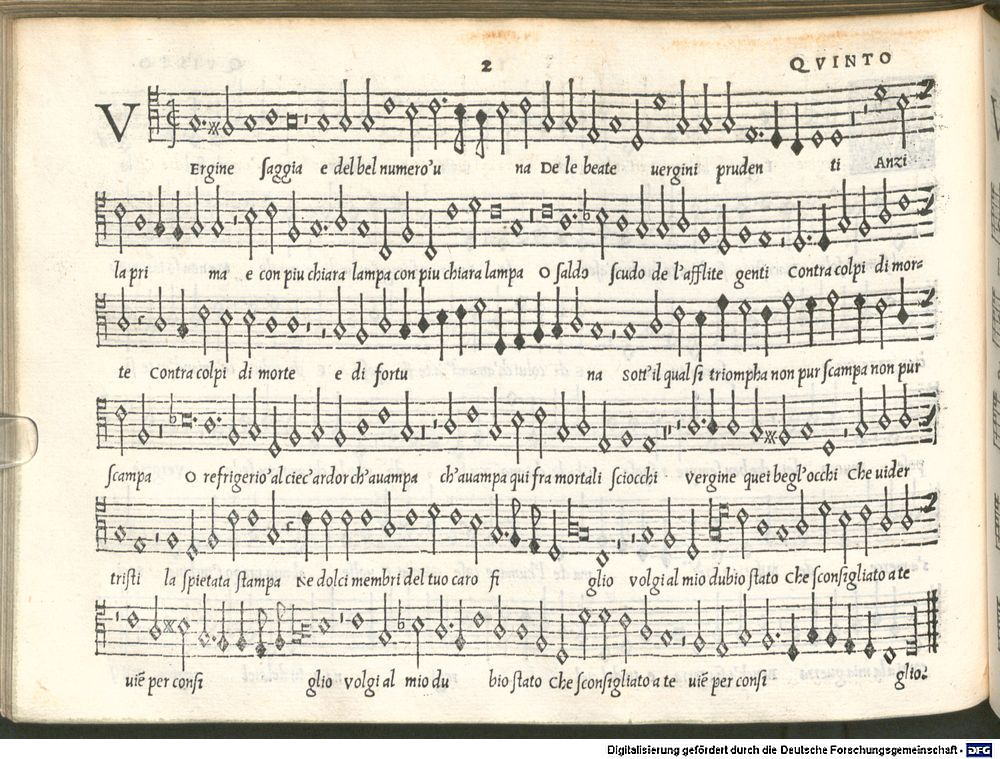 2 QVINTO
V
Ergine saggia e del bel numero'u na De le beate uergini pruden ti Anzi
la pri ma e con piu chiara lampa con piu chiara lampa O saldo scudo de l'afflite genti Contra colpi di mor=
te Contra colpi di morte e di fortu na sott'il qual si triompha non pur scampa non pur
scampa O refrigerio'al ciec'ardor ch'auampa ch'auampa qui fra mortali sciocchi vergine quei begl'occhi Che uider
tristi la spietata stampa Ne dolci membri del tuo caro fi glio volgi al mio dubio stato Che sconsigliato a te
uiẽ per consi glio volgi al mio du bio stato Che sconsigliato a te uiẽ per consi glio.
Digitalisierung gefördert durch die Deutsche Forschungsgemeinschaft - DFG